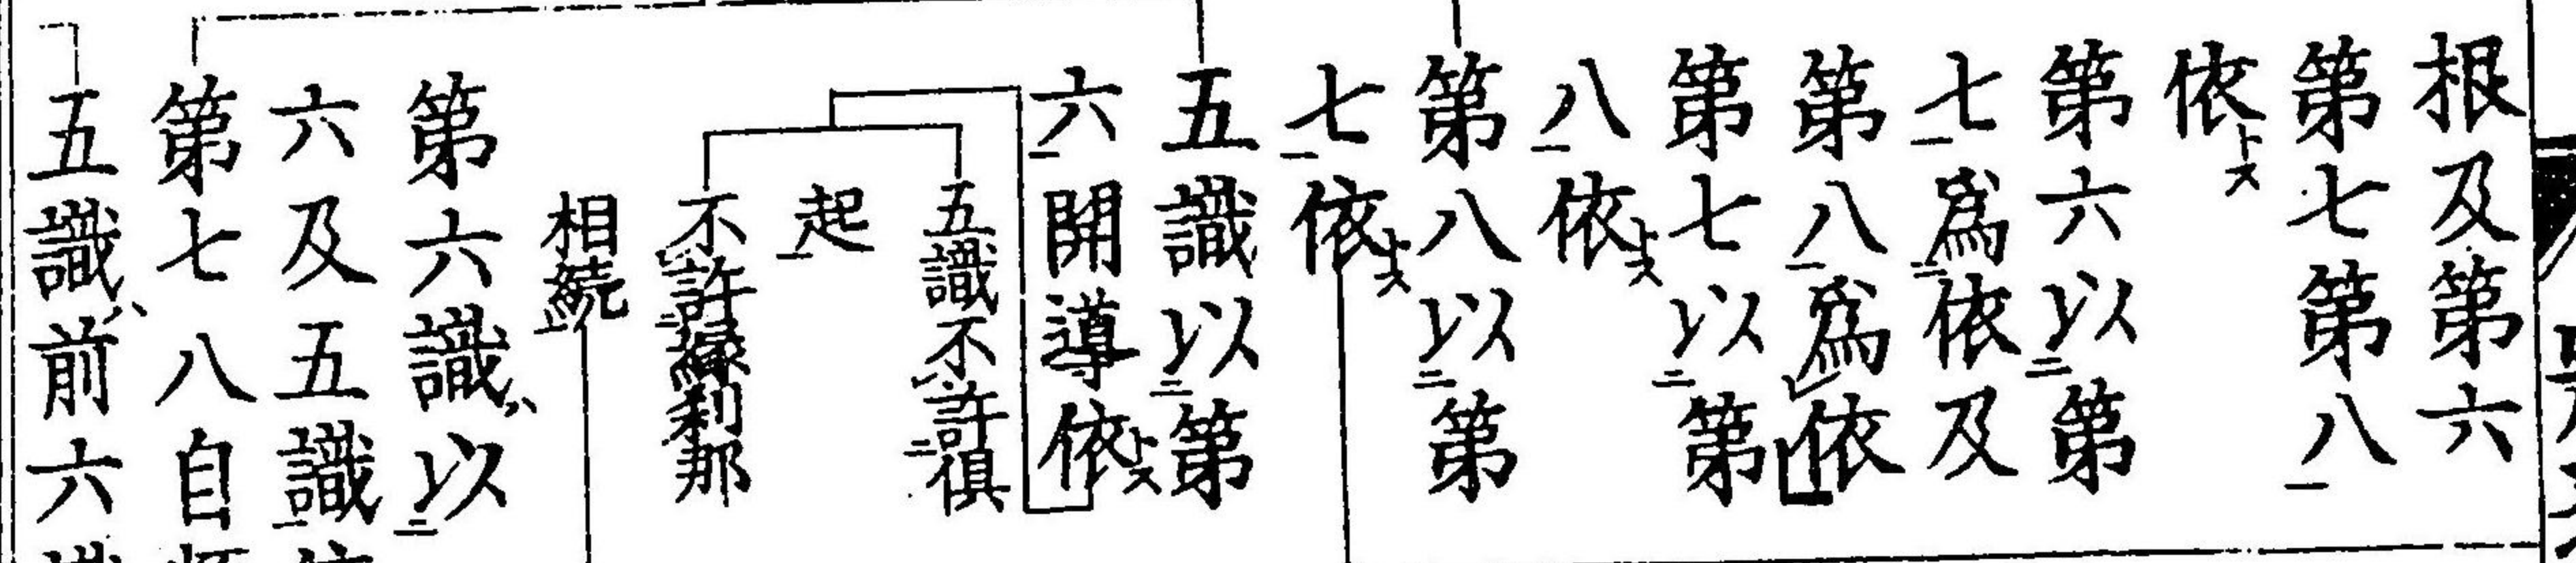 根及第六
第七第八
依トス
第六以第
七爲依及
第八爲依
第七以第
八依トス
第八以第
七依トス
五識以第
六開導依トス
五識不許俱
起
不許緣刹那
相續
第六識以
六及五識
第七八自
五識前六